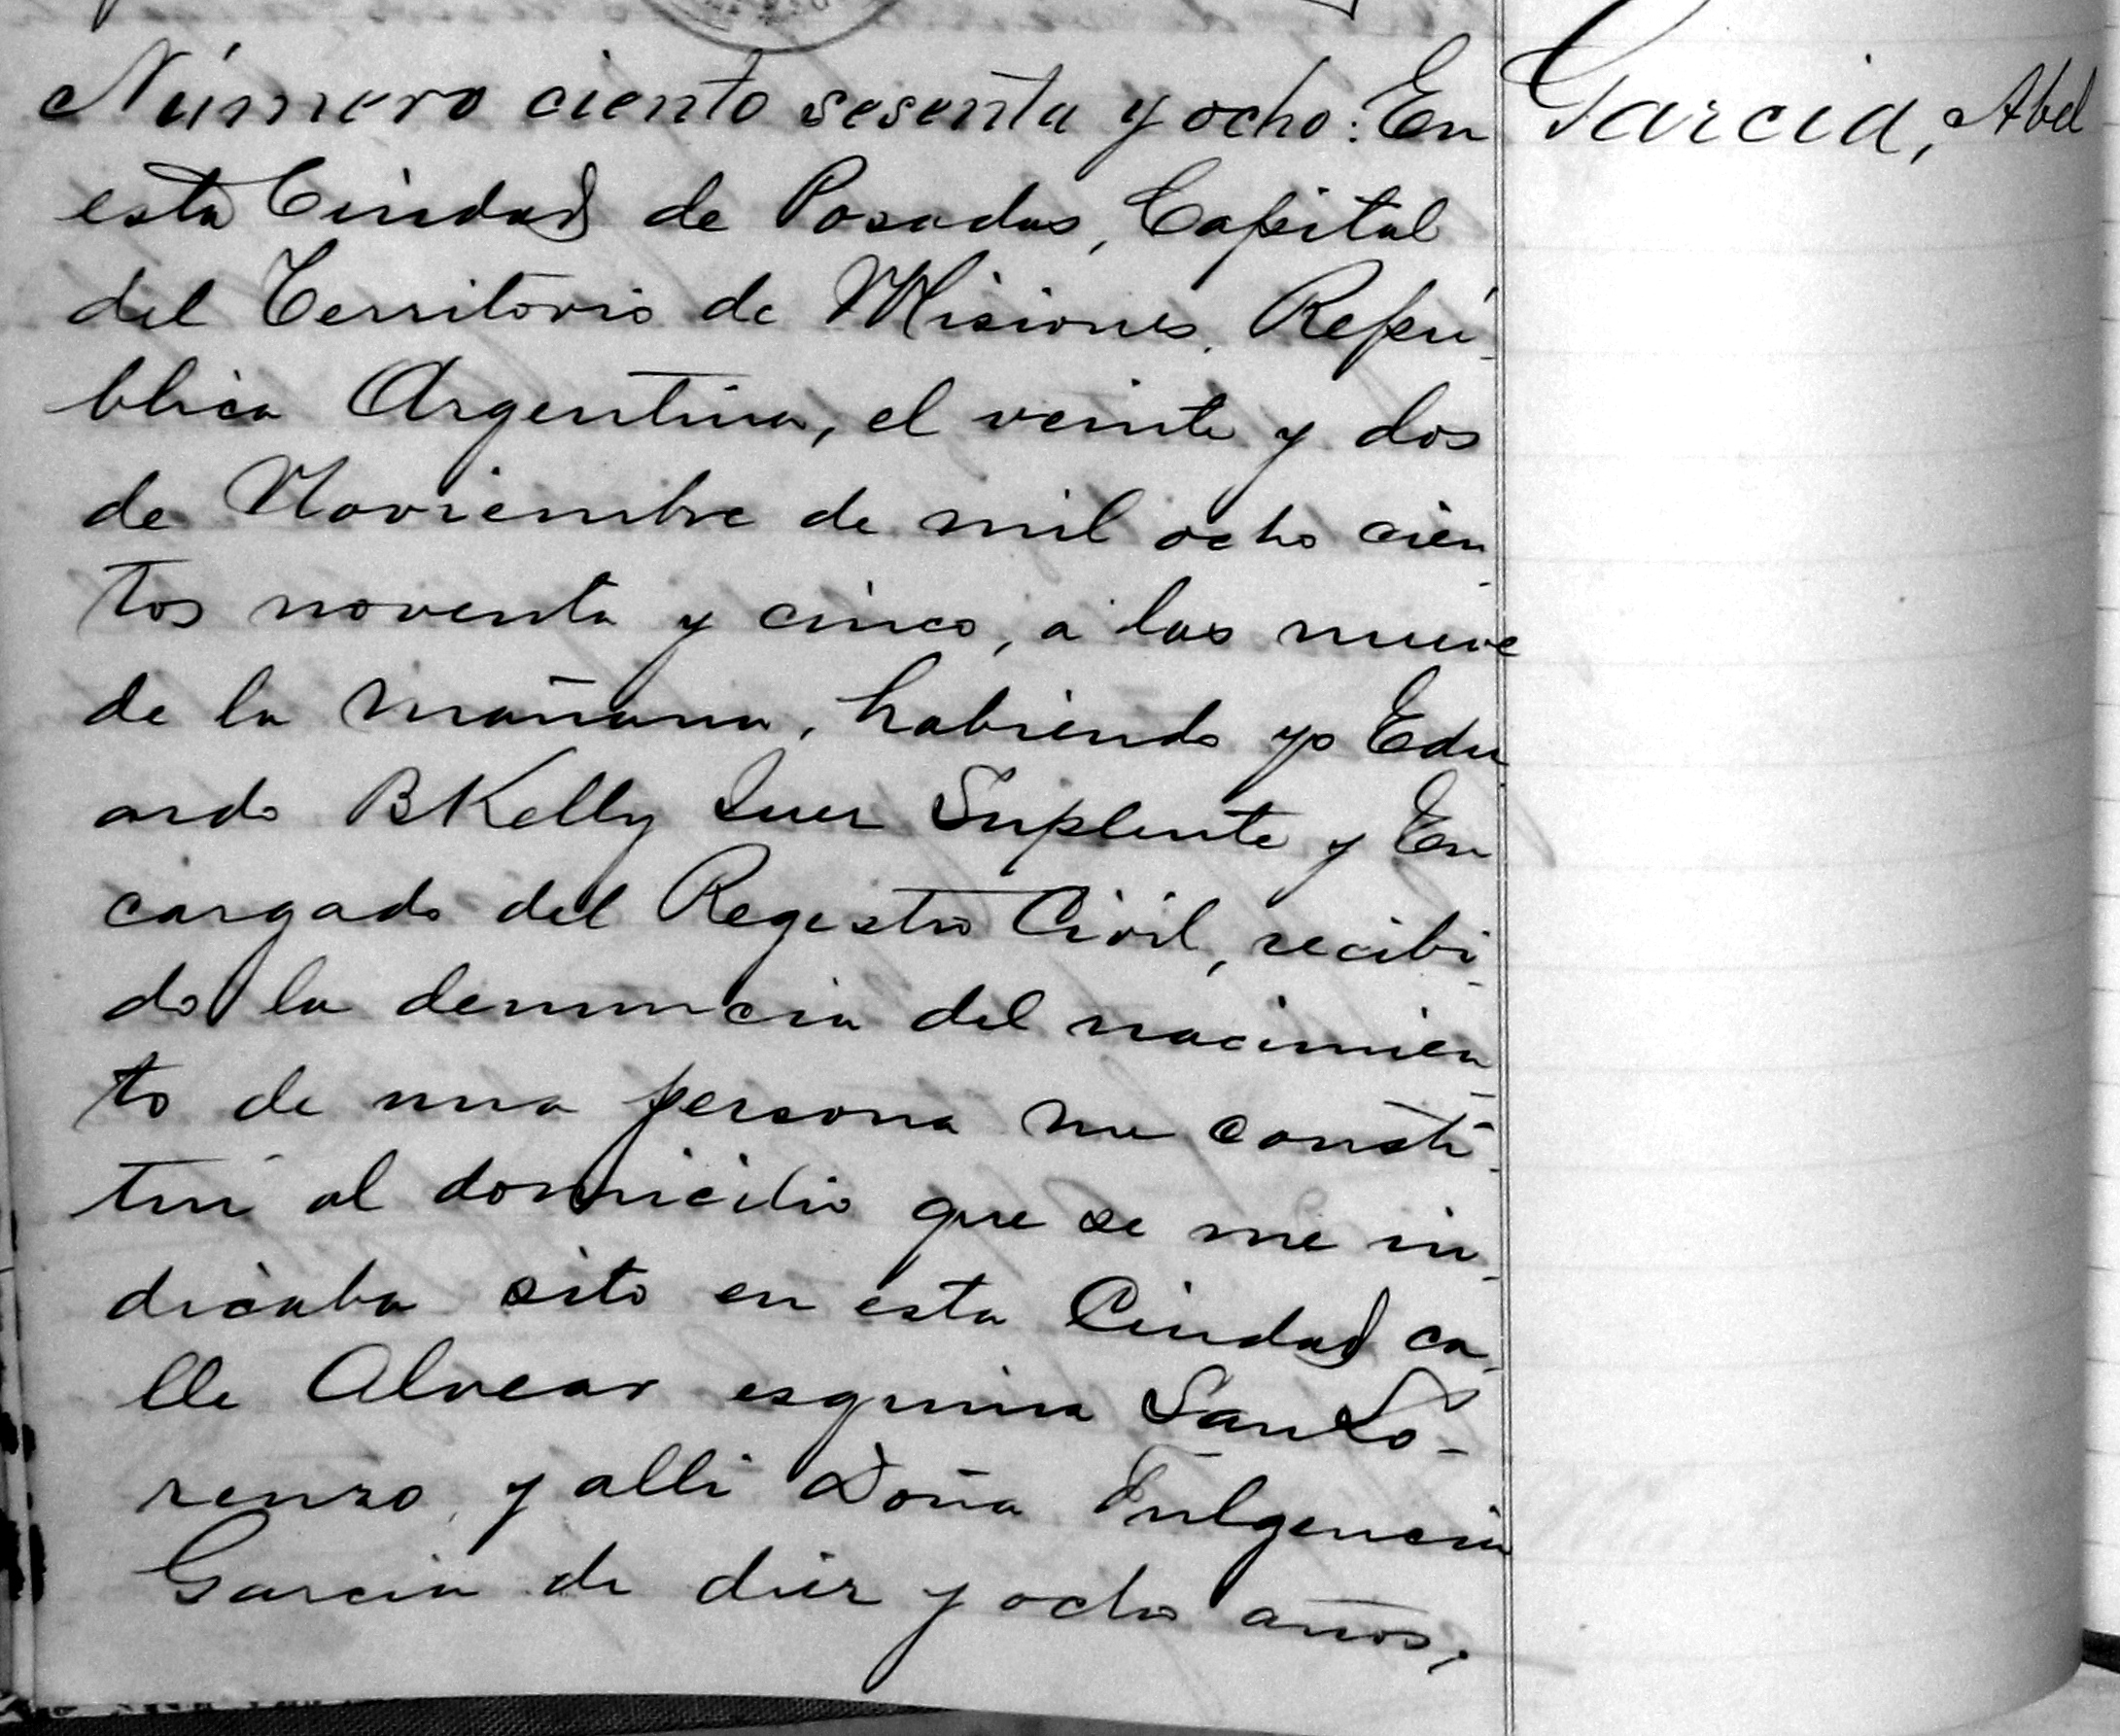 Número ciento sesenta y ocho: En
Garcia, Abel
esta Ciudad de Posadas, Capital
del Territorio de Misiones, Repú-
blica Argentina, el veinte y dos
de Noviembre de mil ocho cien-
tos noventa y cinco, á las nueve
de la mañana, habiendo yo Edu-
ardo B Kelly Juez Suplente y En
cargado del Registro Civil, recibi-
do la denuncia del nacimien-
to de una persona me consti-
tui al domicilio que se me in-
dicaba sito en esta Ciudad ca-
lle Alvear esquina San Lo-
renzo, y alli Doña Fulgencia
Garcia de diez y ocho años,